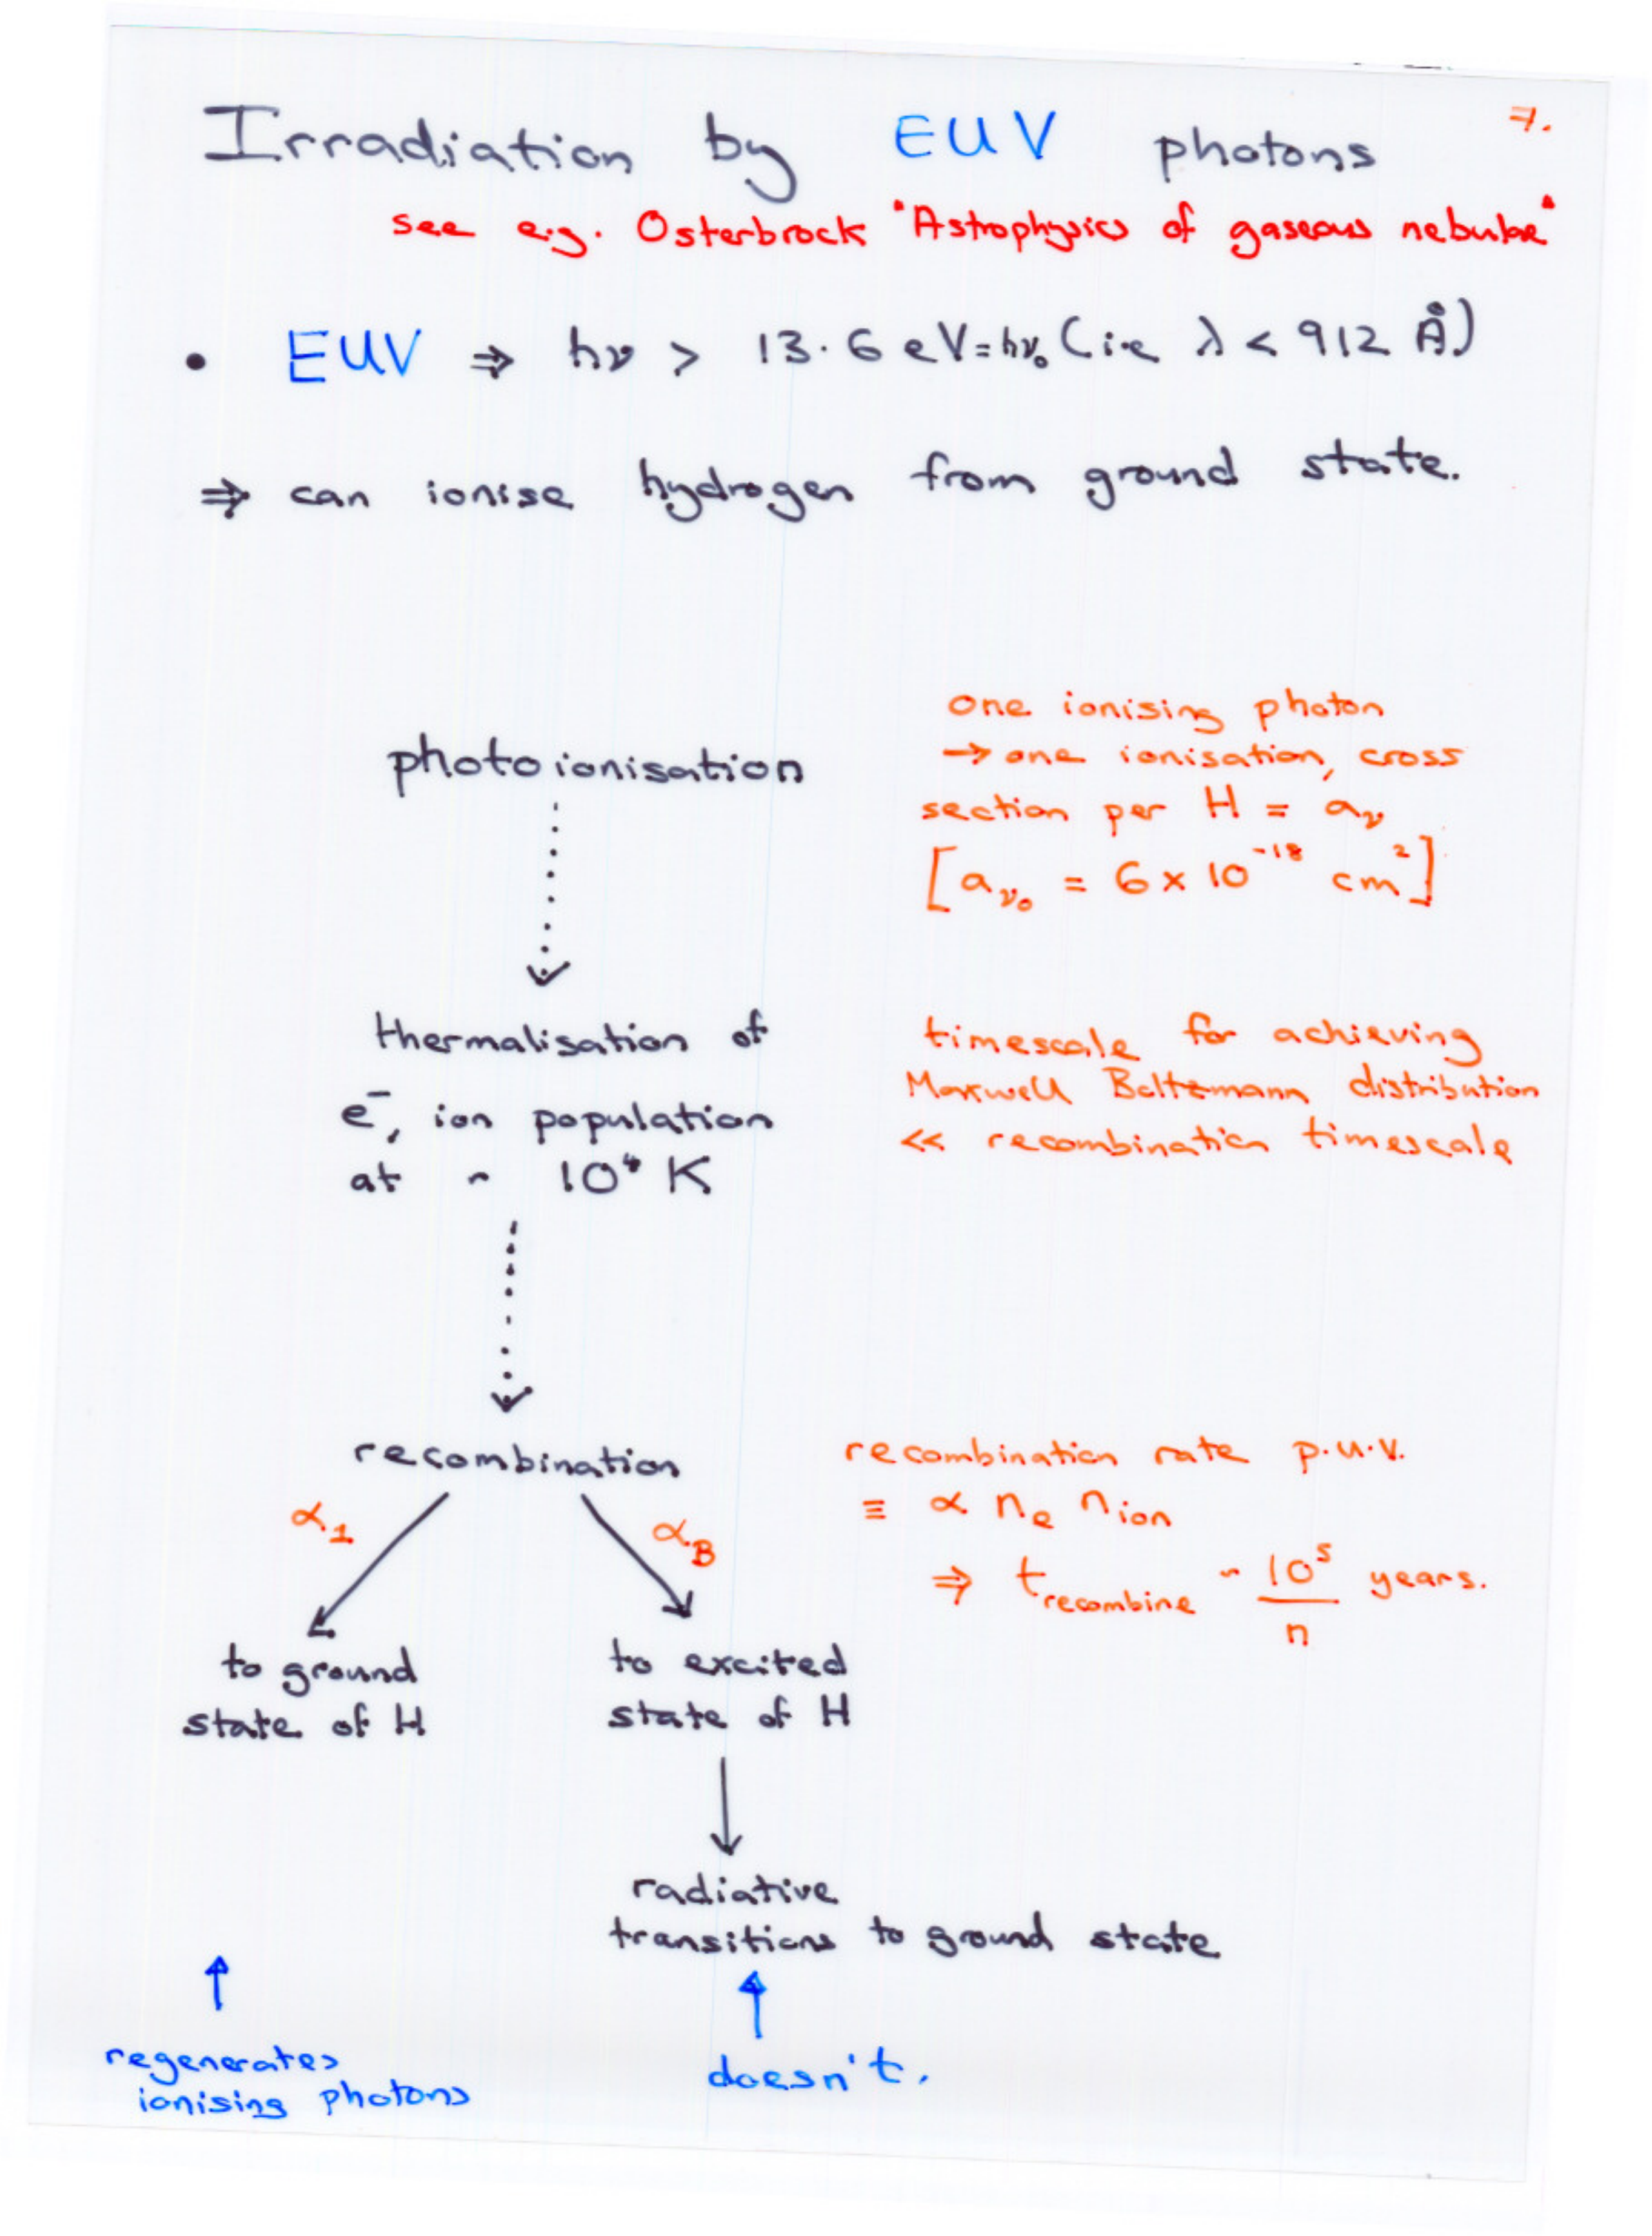 7.
Irradiation by EUV photons
see e.g. Osterbrock "Astrophysics of gaseous nebulae"
• EUV ⇒ hν > 13.6 eV = hν₀ (i.e λ < 912 Å)
⇒ can ionise hydrogen from ground state.
photoionisation
one ionising photon
→ one ionisation, cross
section per H = aᵥ
[aᵥ₀ = 6 × 10⁻¹⁸ cm²]
thermalisation of
e⁻, ion population
at ~ 10⁴ K
timescale for achieving
Maxwell Boltzmann distribution
<< recombination timescale
recombination
recombination rate p.u.v.
≡ α nₑ n_ion
⇒ t_recombine ~ 10⁵/n years.
α₁
α_B
to ground
state of H
to excited
state of H
radiative
transitions to ground state
regenerates
ionising photons
doesn't.